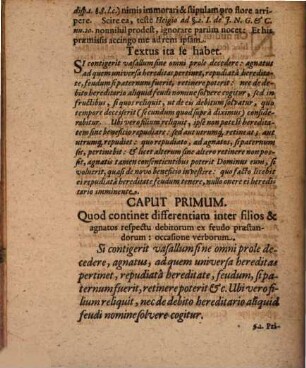 disp. 8. §. 1. c.) nimis immorari & stipulam pro flore arri-
pere. Scire ea, teste Heigio dd q. 1. I. de J. N. G. & C.
nu. 10. nonnihil prodest, ignorare parum nocet: Et his
præmissis accingo me ad rem ipsam.
Textus ita se habet.
Si contigerit vasallum sine omni prole decedere: agnatus
ad quem universa hereditas pertinet, repudiata heredita-
te, feudum si paternum fuerit, retinere poterit: nec de de-
bito hereditario aliquid feudi nomine solvere cogitur, sed in
fructibus, si quos reliquit, ut de eis debitum solvatur, quo
tempore decesserit (secundum quod supra diximus) conside-
rabitur. Ubi vero filium reliquit, ipse non potest heredita-
tem sine beneficio repudiare: sed aut utrumque retineat, aut
utrumque repudiet: quo repudiato, ad agnatos, si paternum
sit, pertinebit: & licet alterum sine altero retinere non pos-
sit, agnatis tamen consentientibus poterit Dominus eum, si
voluerit, quasi de novo beneficio investire: quo facto licebit
ei repudiata hereditate feudum tenere, nullo onere ei heredi-
tario imminente.
CAPUT PRIMUM.
Quod continet differentiam inter filios &
agnatos respectu debitorum ex feudo præstan-
dorum: occasione verborum.
Si contigerit vasallum sine omni prole de-
cedere, agnatus, ad quem universa hereditas
pertinet, repudiatâ hereditate, feudum, si pa-
ternum fuerit, retinere poterit &c. Ubi vero fi-
lium reliquit, nec de debito hereditario aliquid
feudi nomine solvere cogitur.